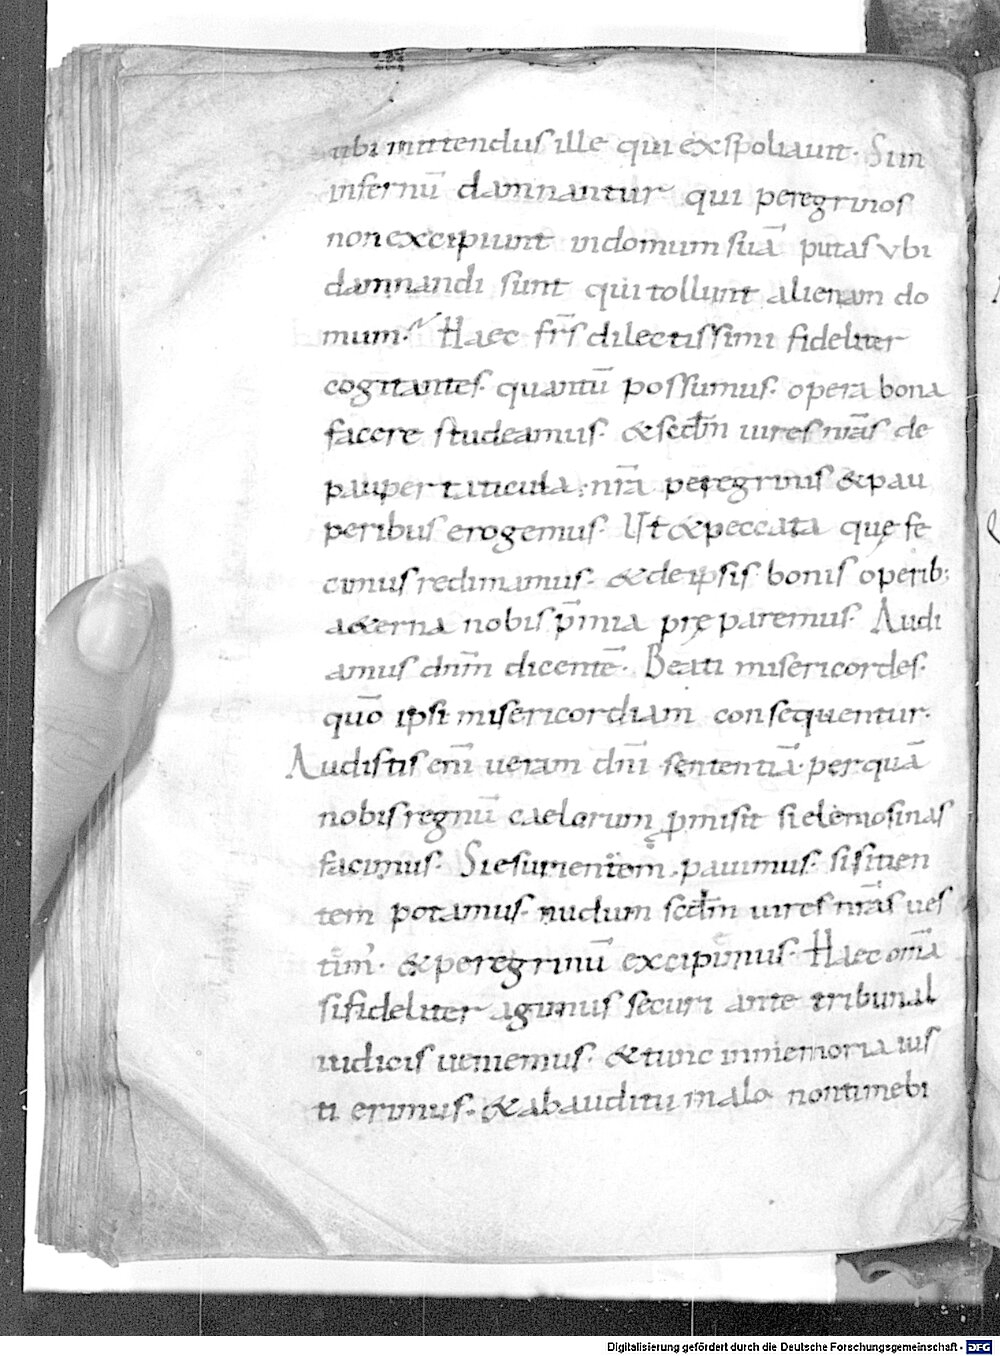 ubi mittendus ille qui exspoliauit. Si in
infernū damnantur qui peregrinos
non excipiunt indomum suā putas vbi
damnandi sunt qui tollunt alienam do
mum. Haec fr̄s dilectissimi fideliter
cogitantes. quantū possumus. opera bona
facere studeamus. & secdm̄ uires nr̄as de
paupertaticula nr̄a peregrinis & pau
peribus erogemus. Ut & peccata quę fe
cimus redimamus. & de ipsis bonis operib;
aeterna nobis p̄mia pręparemus. Audi
amus dnm̄ dicentē. Beati misericordes.
quō ipsi misericordiam consequentur.
Audistis eni̅ ueram dni̅ sententiā. per quā
nobis regnū caelorum ꝓmisit si elemosinas
facimus. Si esurientem pauimus. si sitien
tem potamus. nudum secdm̄ uires nr̄as ues
tim'. & peregrinū excipimus. Haec om̄a
si fideliter agimus securi ante tribunal
iudicis ueniemus. & tunc in memoria ius
ti erimus. & ab auditu malo non timebi
Digitalisierung gefördert durch die Deutsche Forschungsgemeinschaft - DFG